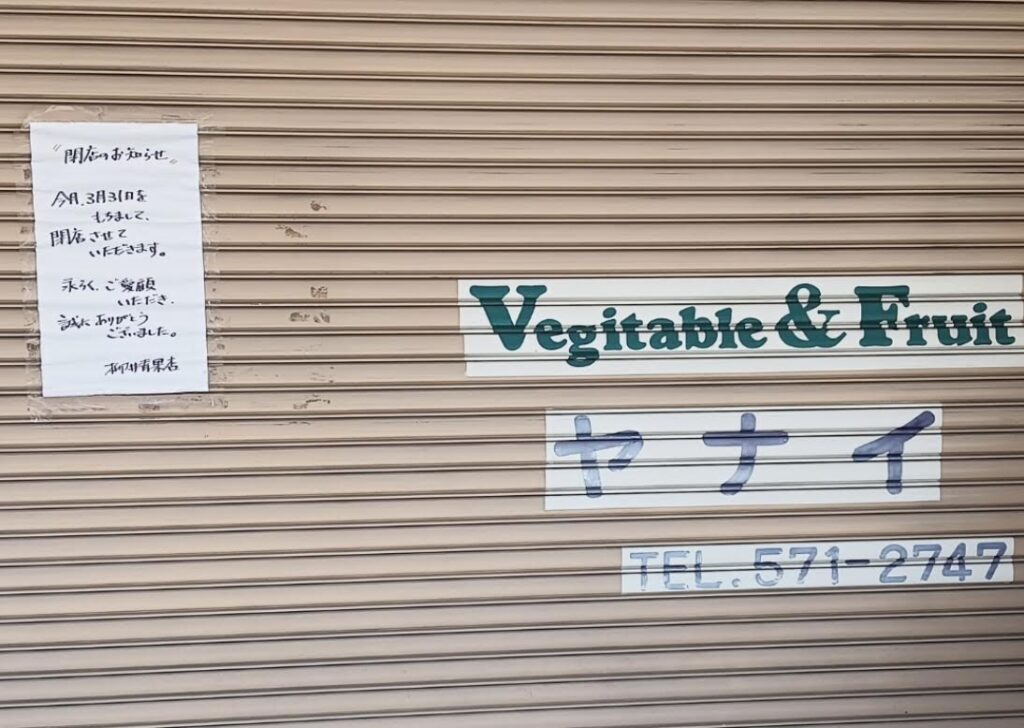 〝閉店のお知らせ〟
今月、3月31日を
もちまして、
閉店させて
いただきます。
永らく、ご愛顧
いただき、
誠にありがとう
ございました。
柳井青果店
Vegitable & Fruit
ヤナイ
TEL. 571-2747